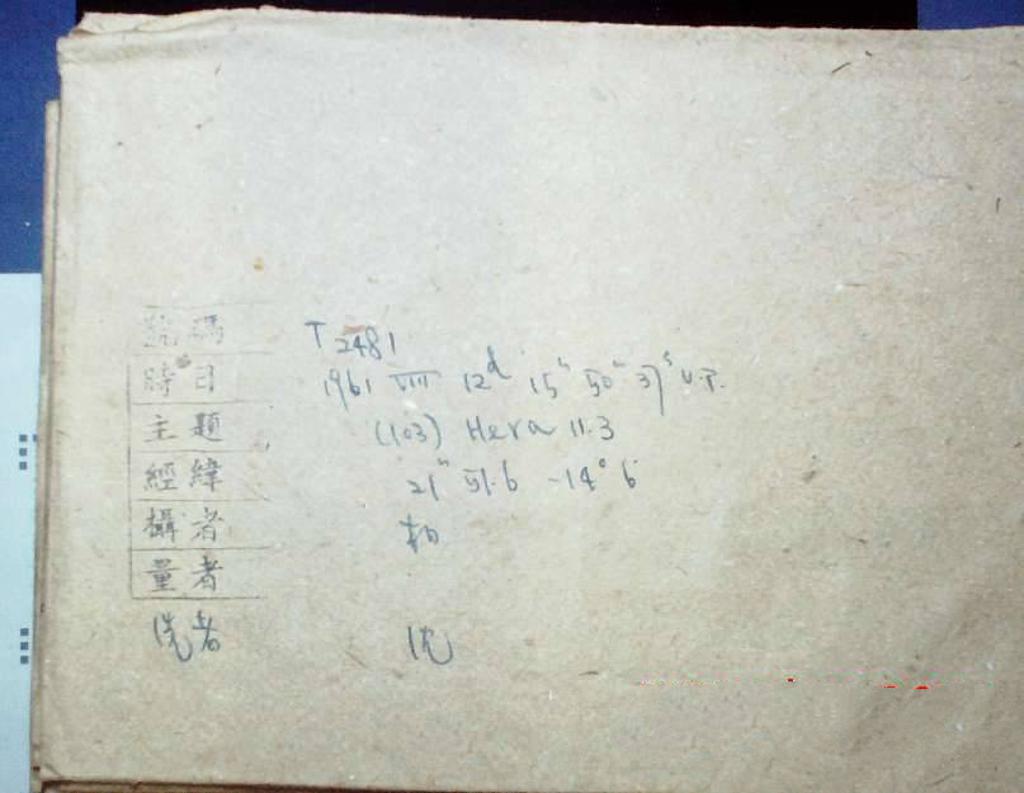 號碼 T 2481
時日 1961 VIII 12d 15h 50m 37s U.T.
主題 (103) Hera 11.3
經緯 21h 51.6 -14° 6
攝者 柏
量者
洗者 沈